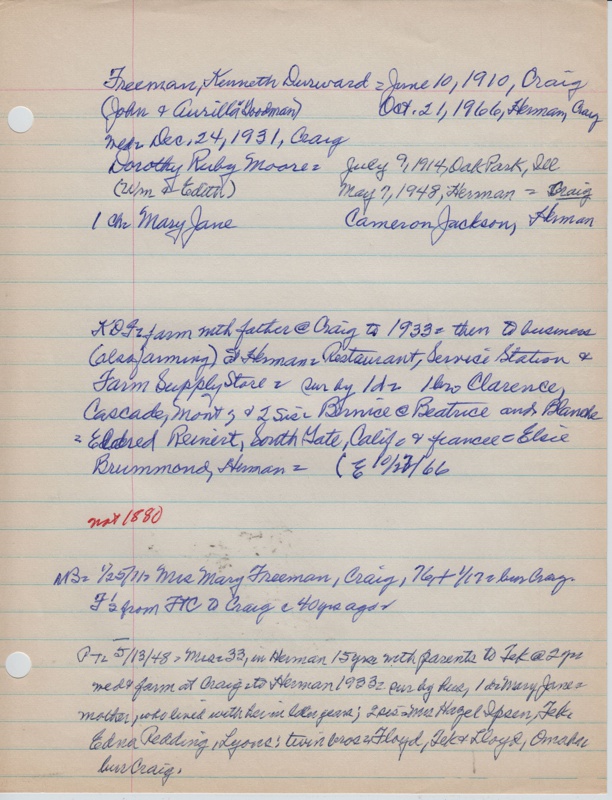 Freeman, Kenneth Durward = June 10, 1910, Craig
(John & Aurilla Goodman) Oct. 21, 1966, Herman, Craig
med= Dec. 24, 1931, Craig
Dorothy Ruby Moore = July 9, 1914, Oak Park, Ill
(Wm & Edith) May 7, 1948, Herman = Craig
1 ch= Mary Jane Cameron Jackson, Herman
KDF= farm with father @ Craig to 1933= then to business
(also farming) @ Herman= Restaurant, Service Station &
Farm Supply Store = sur by 1d= 1 bro Clarence,
Cascade, Mont; & 2 sis= Bernice @ Beatrice and Blanche
= Eldred Reinert, South Gate, Calif & fiancee = Elsie
Brummond, Herman = (E 10/27/66
not 1880
NB= 1/25/11= Mrs Mary Freeman, Craig, 76, + 1/17= bur Craig.
F's from FTC to Craig c 40 yrs ago
PT= 5/13/48= Mrs= 33, in Herman 15 yrs= with parents to Tek @ 2 yrs
med & farm at Craig= to Herman 1933= sur by hus, 1 d= Mary Jane=
mother, who lived with her in later years; 2 sis= Mrs Hazel Ipsen, Tek,
Edna Redding, Lyons; twin bros= Floyd, Tek & Lloyd, Omaha
bur Craig.